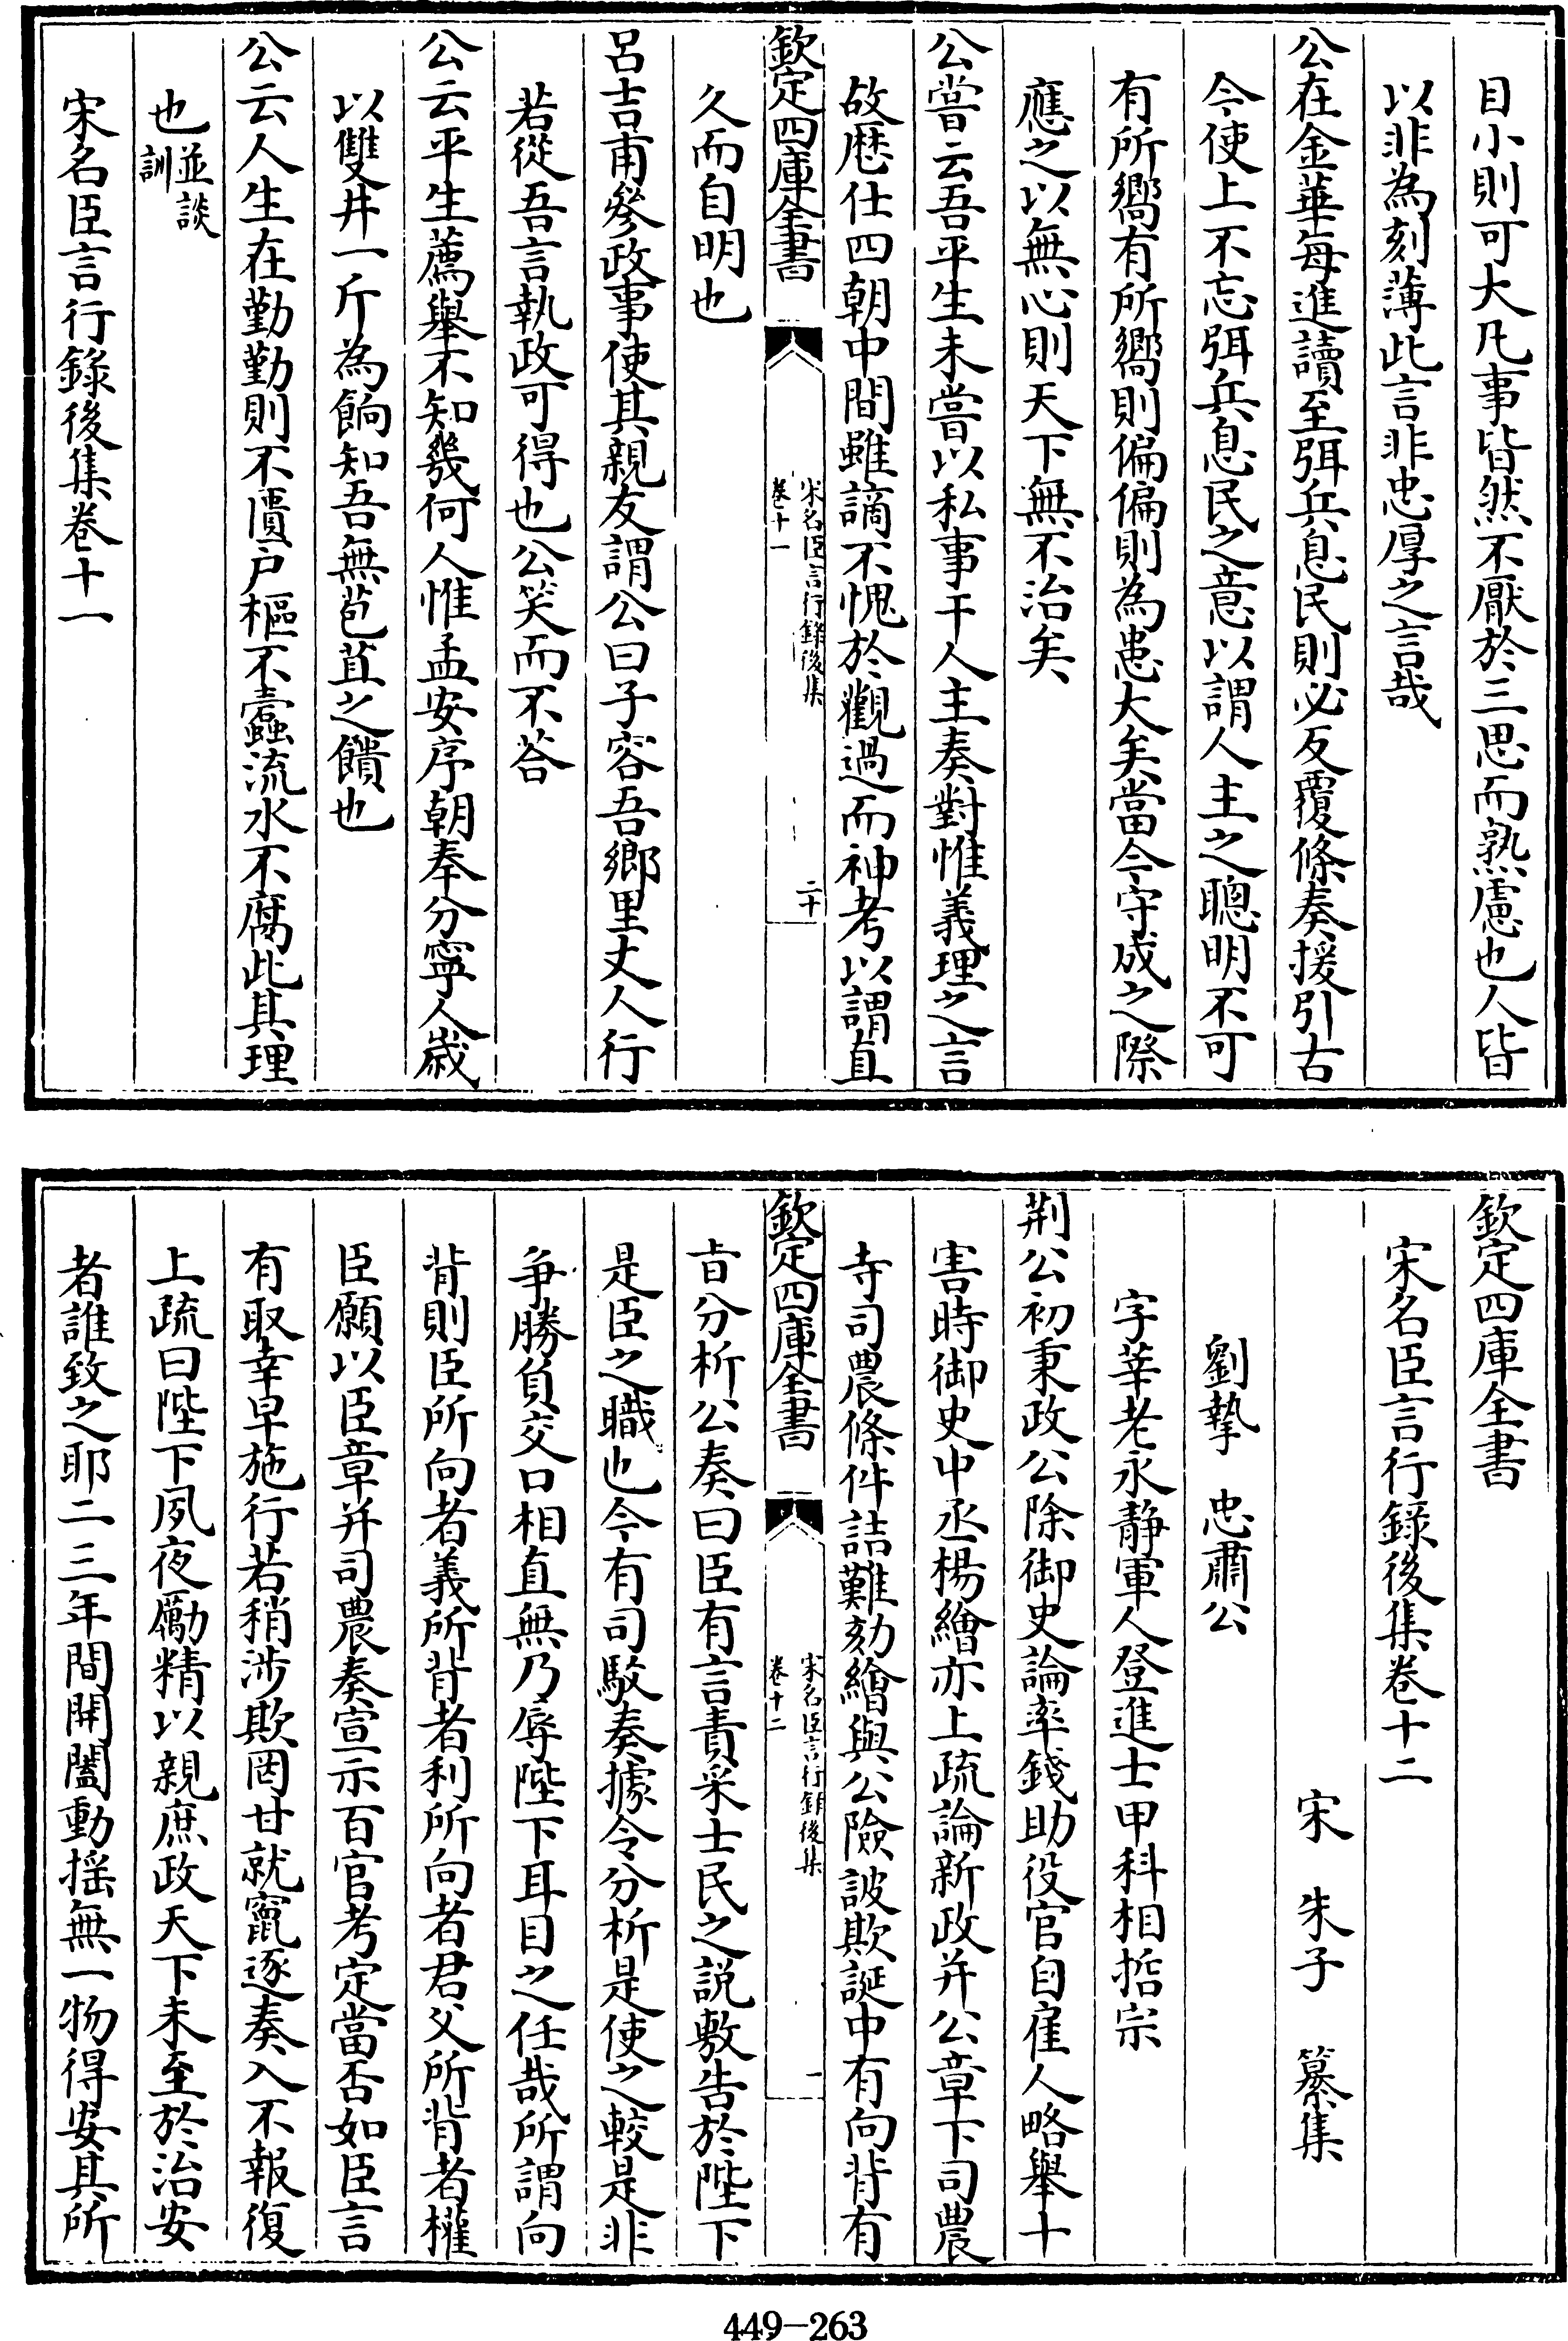 目小則可大凡事皆然不厭於三思而熟慮也人皆
以非為刻薄此言非忠厚之言哉
公在金華每進讀至弭兵息民則必反覆條奏援引古
今使上不忘弭兵息民之意以謂人主之聰明不可
有所嚮有所嚮則偏偏則為患大矣當今守成之際
應之以無心則天下無不治矣
公嘗云吾平生未嘗以私事干人主奏對惟義理之言
故歴仕四朝中間雖謫不愧於觀過而神考以謂直
欽定四庫全書
宋名臣言行錄後集
卷十一
二十
久而自明也
呂吉甫參政事使其親友謂公曰子容吾鄉里丈人行
若從吾言執政可得也公笑而不荅
公云平生薦舉不知幾何人惟孟安序朝奉分寧人歳
以雙井一斤為餉知吾無苞苴之饋也
公云人生在勤勤則不匱户樞不蠹流水不腐此其理
也並談
訓
宋名臣言行錄後集卷十一
欽定四庫全書
宋名臣言行錄後集卷十二
宋 朱子 纂集
劉摯 忠肅公
字莘老永靜軍人登進士甲科相哲宗
荆公初秉政公除御史論率錢助役官自雇人略舉十
害時御史中丞楊繪亦上疏論新政并公章下司農
寺司農條件詰難劾繪與公險詖欺誕中有向背有
欽定四庫全書
宋名臣言行錄後集
卷十二
一
㫖分析公奏曰臣有言責采士民之説敷告於陛下
是臣之職也今有司駮奏據令分析是使之較是非
爭勝負交口相直無乃辱陛下耳目之任哉所謂向
背則臣所向者義所背者利所向者君父所背者權
臣願以臣章并司農奏宣示百官考定當否如臣言
有取幸早施行若稍涉欺罔甘就竄逐奏入不報復
上疏曰陛下夙夜勵精以親庶政天下未至於治安
者誰致之耶二三年間開闔動揺無一物得安其所
449-263